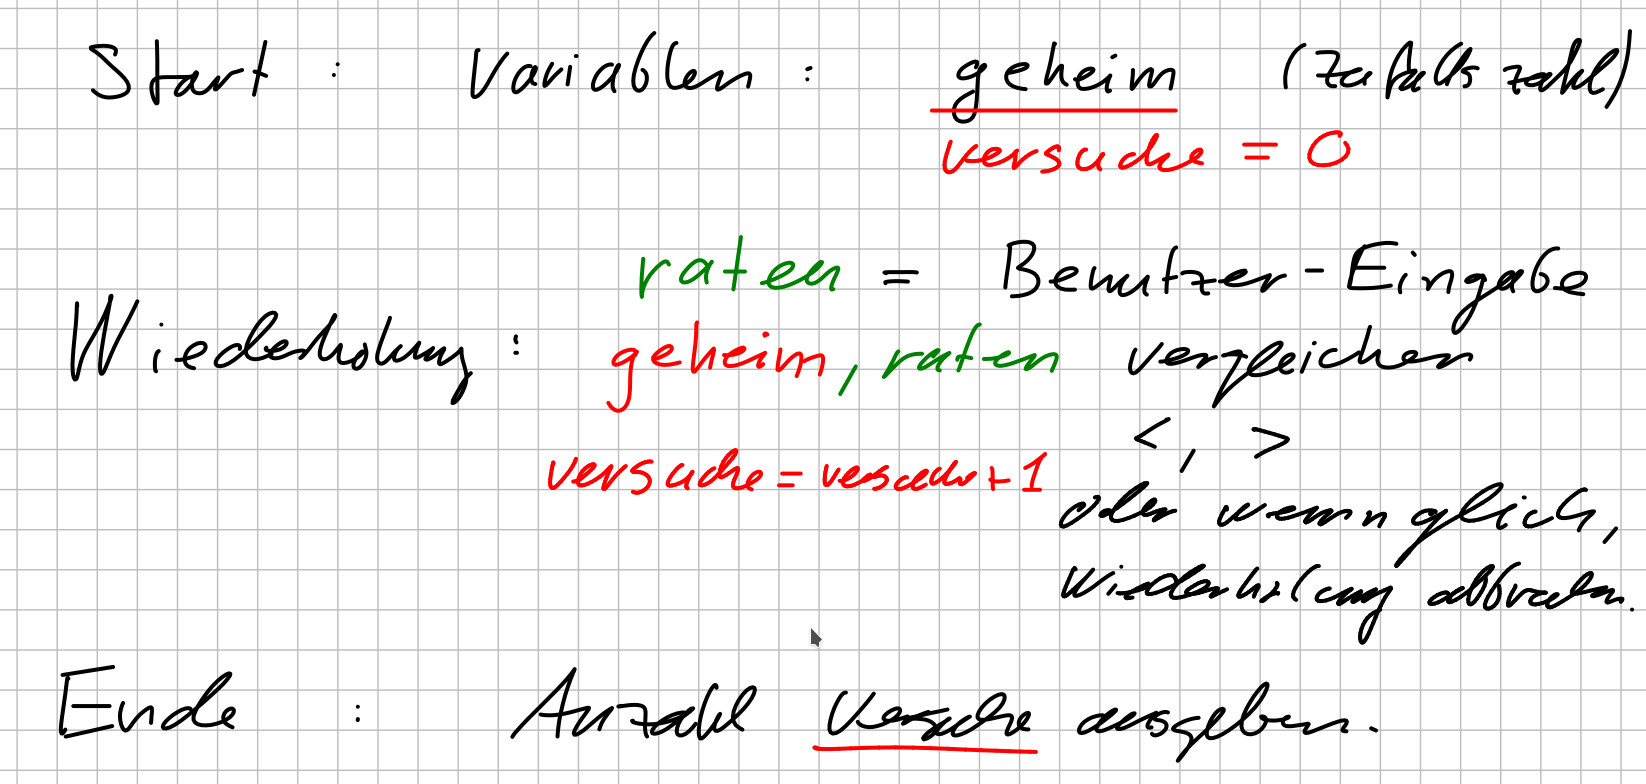 Start : Variablen : geheim (Zufallszahl)
versuche = 0
raten = Benutzer-Eingabe
Wiederholung : geheim, raten vergleichen
<, >
versuche = versuche + 1
oder wenn glich,
Wiederholung abbrechen.
Ende : Anzahl Versuche ausgeben.